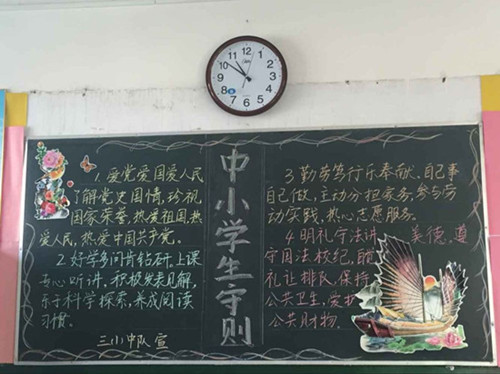 中小学生守则
1.爱党爱国爱人民
了解党史国情,珍视
国家荣誉,热爱祖国,热
爱人民,热爱中国共产党。
2.好学多问肯钻研.上课
专心听讲,积极发表见解,
乐于科学探索,养成阅读
习惯。
三小中队宣
3勤劳笃行乐奉献.自己事
自己做,主动分担家务,参与劳
动实践,热心志愿服务。
4明礼守法讲美德,遵
守国法校纪,自
礼让排队,保持
公共卫生,爱护
公共财物.
12
1
2
3
4
5
6
7
8
9
10
11